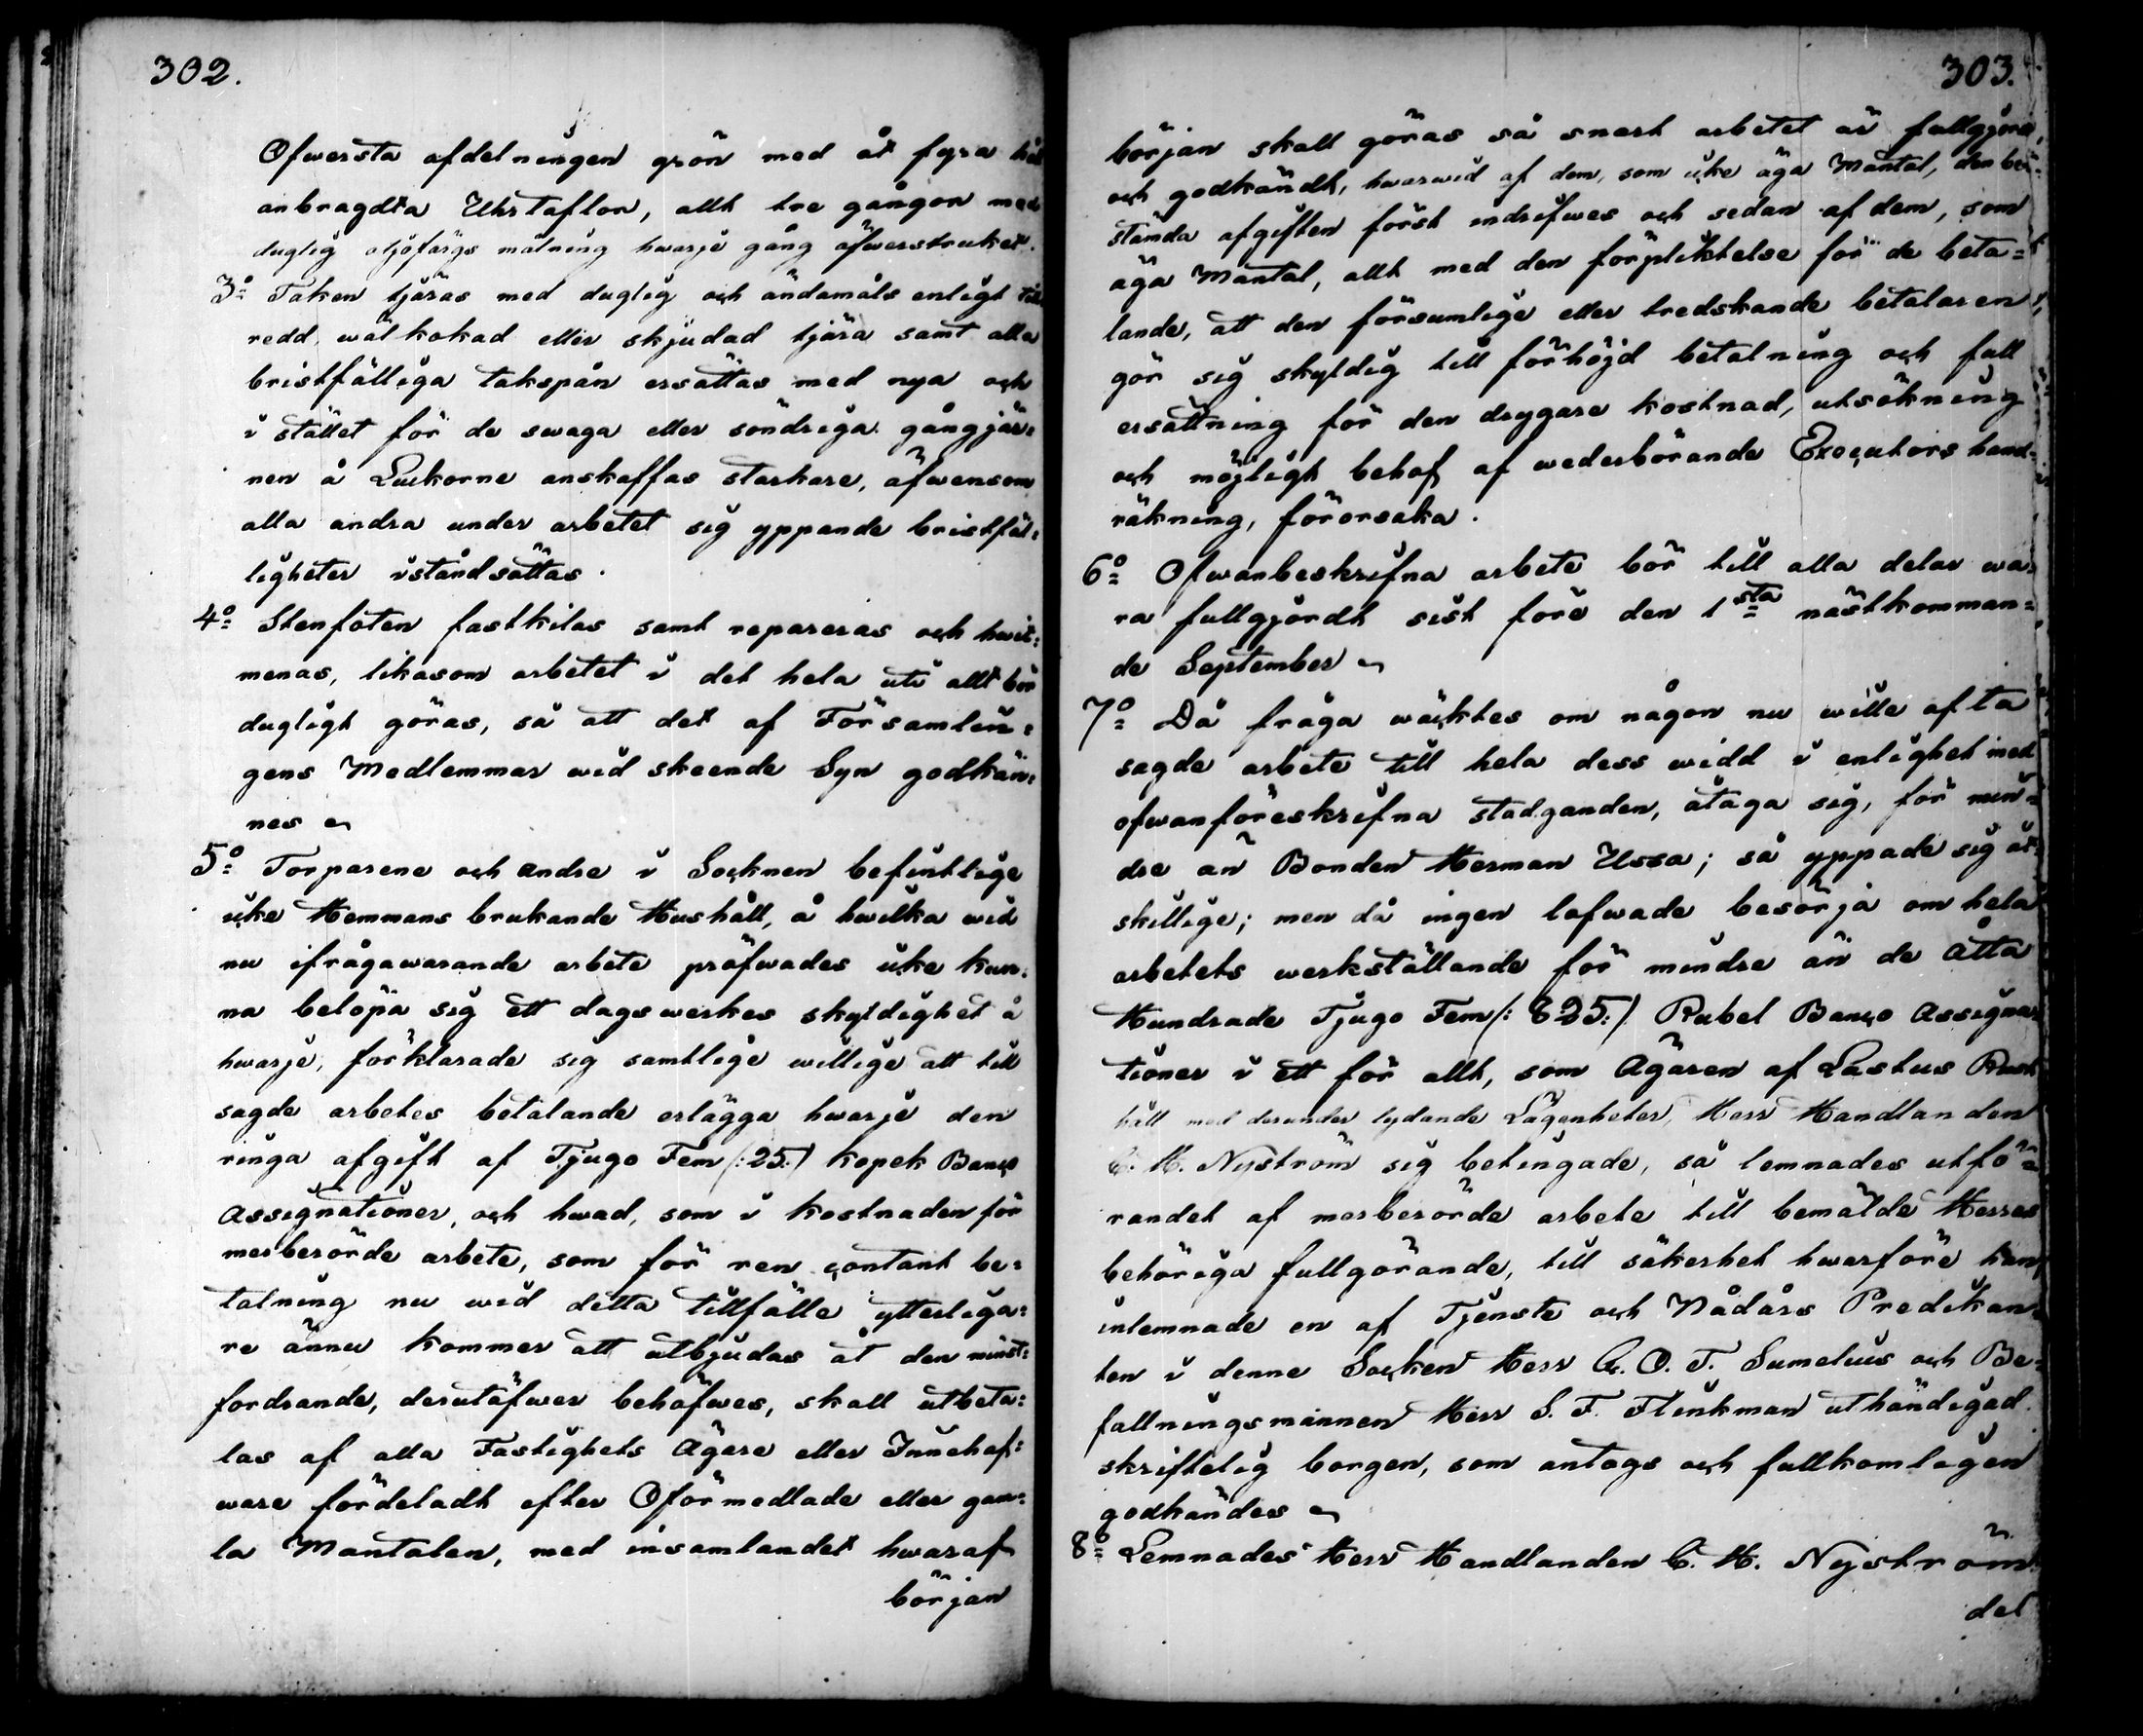 302.
Ofwersta afdelningen grön med åt fyra
anbragdta Uhrtaflor, allt tre gångor med
duglig oljofärgs målning hwarje gång öfwerstruket.
3o Taken tjäras med duglig och ändamåls enligt till
redd, wäl kokad eller skjudad tjära samt alla
bristfälliga takspån ersättas med nya och
i stället för de swaga eller söndriga gångjär=
nen å Luckorne anskaffas starkare, äfwensom
alla andra under arbetet sig yppande bristfäl=
ligheter iståndsättas.
4o Stenfoten fastkilas samt repareras och hwit=
menas, likasom arbetet i det hela uti allt bör
dugligt göras, så att det af Församlin=
gens Medlemmar wid skeende Syn godkän=
nes
5o Torparene och andre i Socknen befintlige
icke Hemmans brukande Hushåll, å hwilka wid
nu ifrågawarande arbete pröfwades icke kun=
na belöpa sig ett dagswerkes skyldighet å
hwarje, förklarade sig samtlige willige att till
sagde arbetes betalande erlägga hwarje den
ringa afgift af Tjugo Fem /:25:/ kopek Banco
Assignationer, och hwad, som i kostnaden för
merberörde arbete, som för ren contant be=
talning nu wid detta tillfälle ytterliga=
re ännu kommer att utbjudas åt den minst=
fordrande, derutöfwer behöfwes, skall utbeta=
las af alla Fastighets Ägare eller Innehaf=
ware fördeladt efter Oförmedlade eller gam=
la Mantalen, med insamlandet hwaraf
början
303.
början skall göras så snart arbetet är fullgjord,
och godkändt, hwarwid af dem, som icke äga Mantal, den be=
stämda afgiften först indrifwes och sedan af dem, som
äga Mantal, allt med den förpliktelse för de beta=
lande, att den försumlige eller tredskande betalaren
gör sig skyldig till förhöjd betalning och full
ersättning för den drygare kostnad, utsökning
och möjligt behof af wederbörande Executors hand=
räkning, förorsaka.
6o Ofwanbeskrifna arbete bör till alla delar wa=
ra fullgjordt sist före den 1sta nästkomman=
de September
7o Då fråga wäcktes om någon nu wille ofta
sagde arbete till hela dess widd i enlighet med
ofwanföreskrifna stadganden, åtaga sig, för min=
dre än Bonden Herman Ussa; så yppade sig åt=
skillige; men då ingen lofwade besörja om hela
arbetets werkställande för mindre än de Åtta
Hundrade Tjugo Fem /:825:/ Rubel Banco Assigna=
tioner i ett för allt, som Ägaren af Lastus Rust
håll med derunder lydande Lägenheter, Herr Handlanden
C. H. Nyström sig betingade, så lemnades utfö=
randet af merberörde arbete till bemälde Herres
behöriga fullgörande, till säkerhet hwarföre han
inlemnade en af Tjenste och Nådårs Predikan=
ten i denne Socken Herr G. O. T. Sumelius och Be=
fallningsmannen Herr S. F. Flinkman uthändigad
skriftelig borgen, som antogs och fullkomligen
godkändes
8o Lemnades Herr Handlanden C. H. Nyström
det